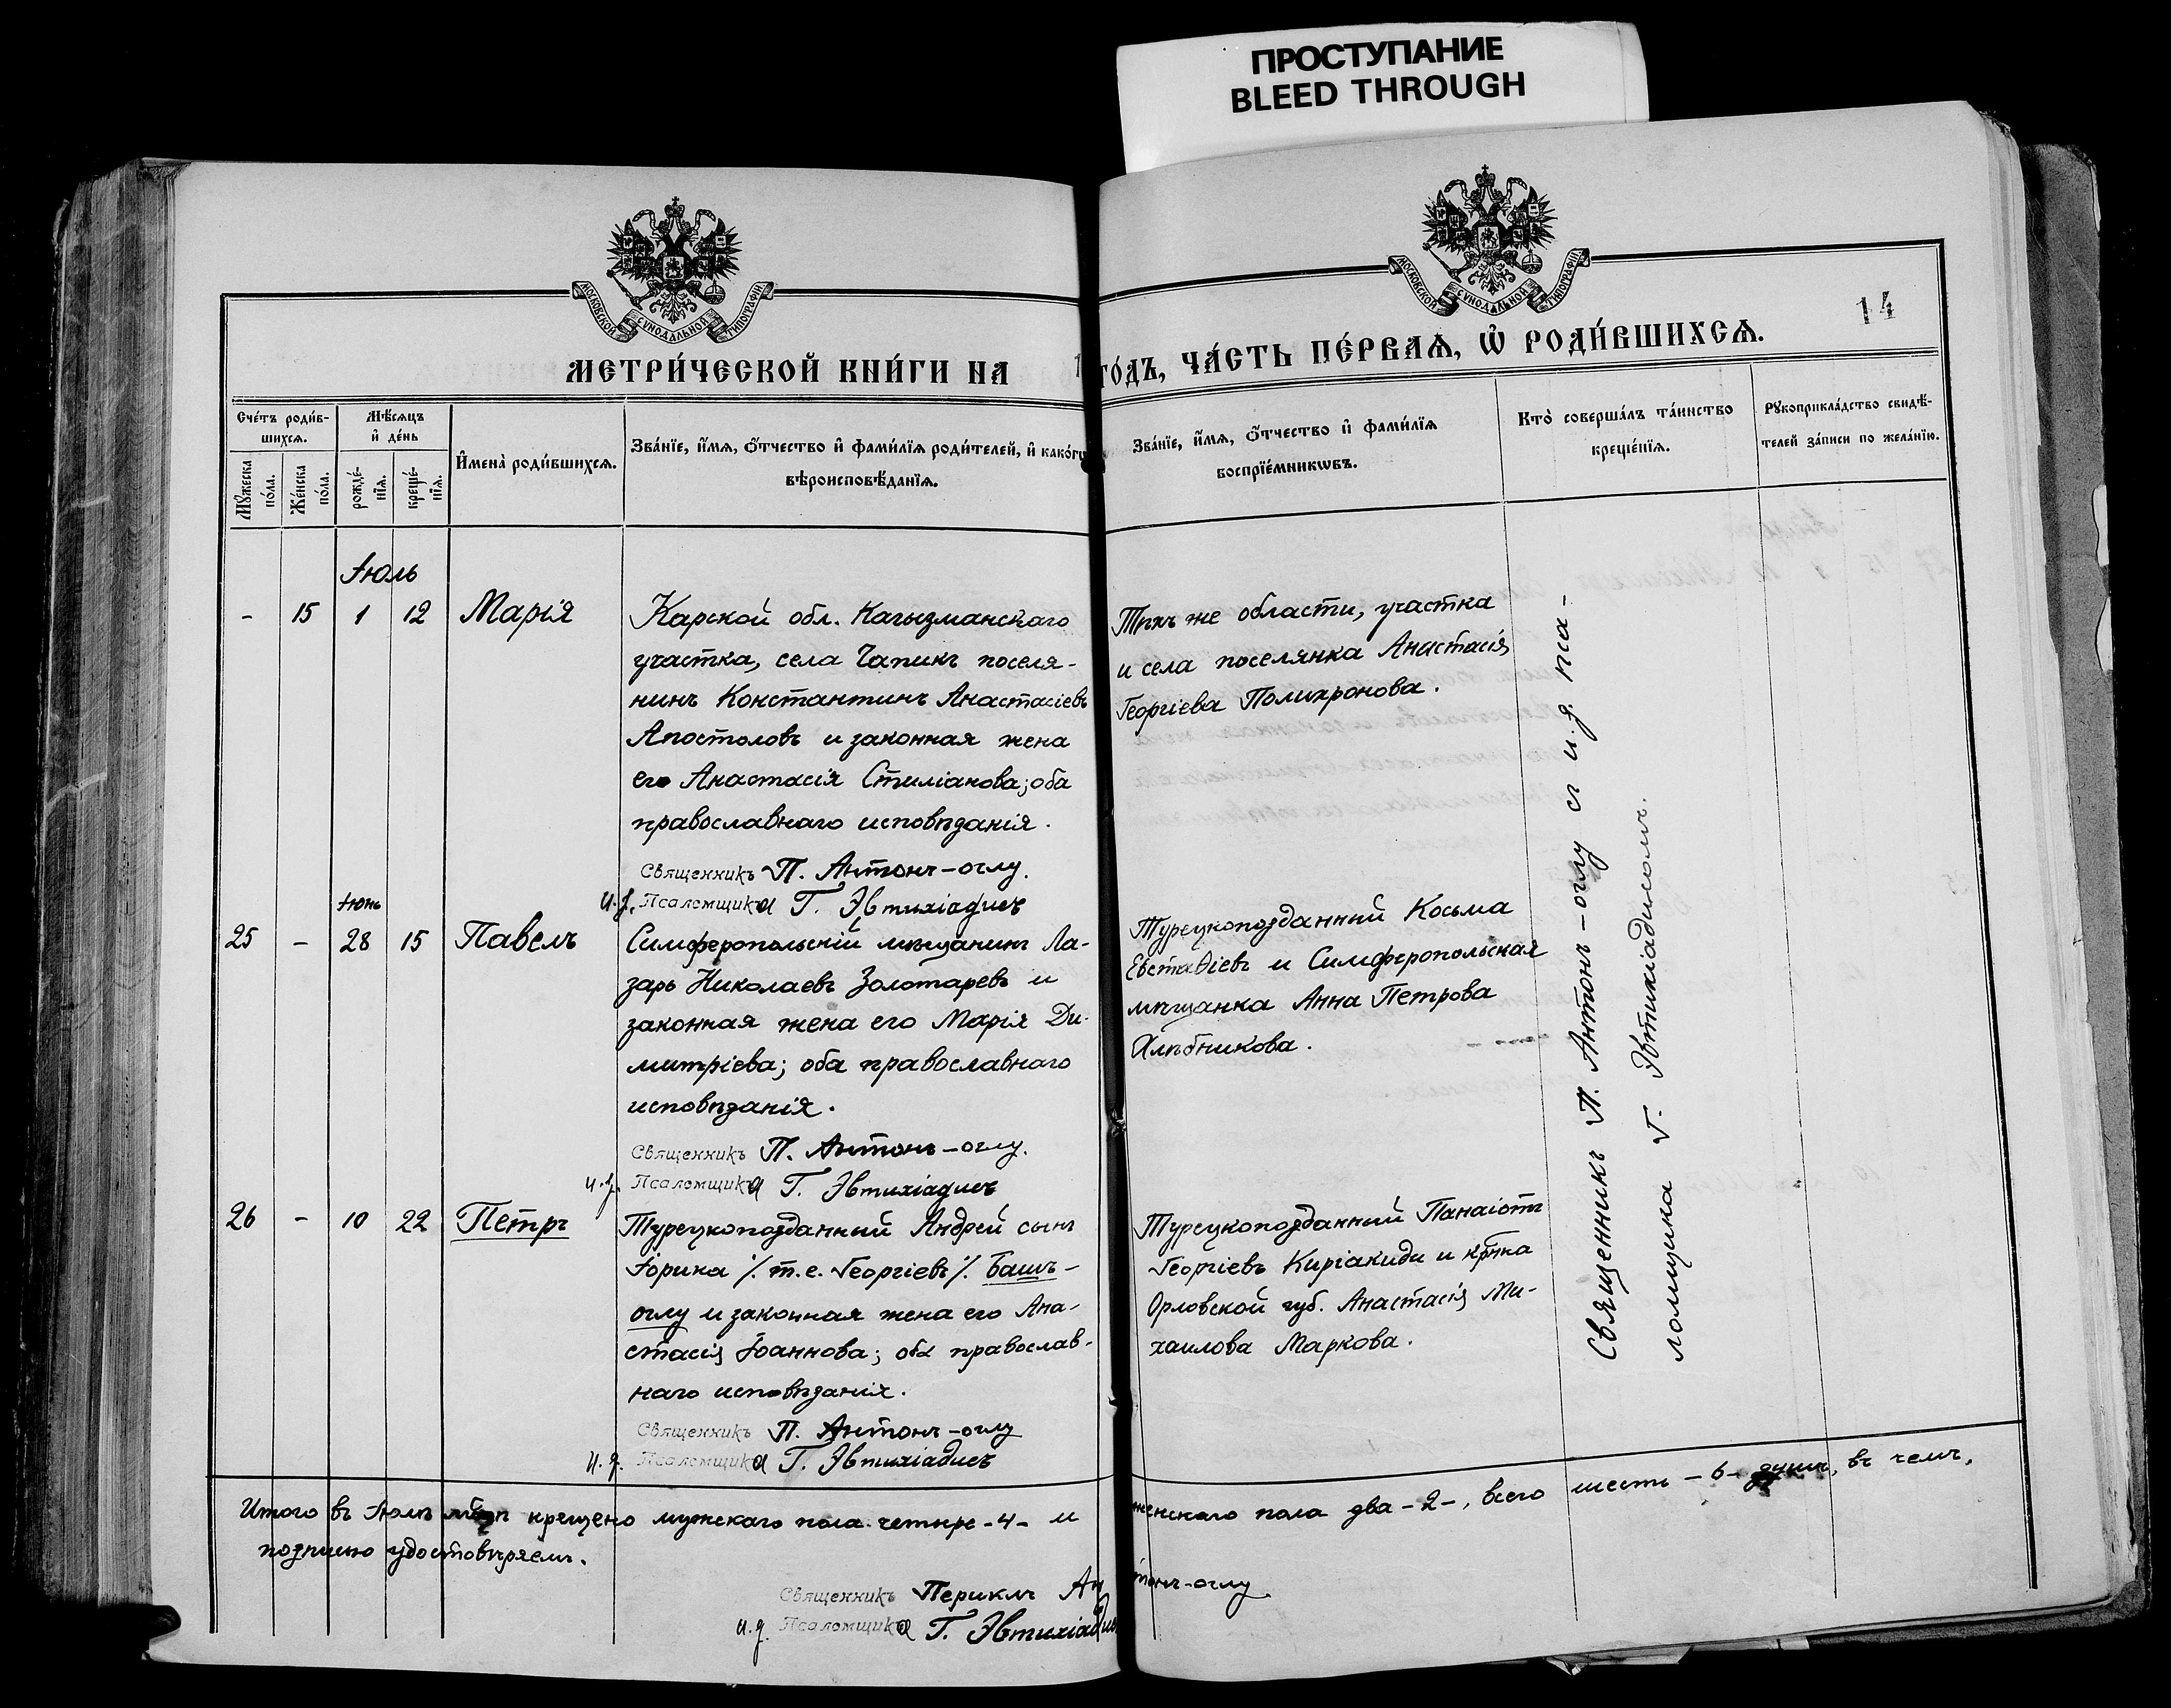 ПРОСТУПАНИЕ
BLEED THROUGH
МОСКОВСКОЙ СѴНОДАЛЬНОЙ ТИПОГРАФІИ
МОСКОВСКОЙ СѴНОДАЛЬНОЙ ТИПОГРАФІИ
14
МЕТРИ́ЧЕСКОЙ КНИ́ГИ НА 1
ГО́ДЪ, ЧА́СТЬ ПЕ́РВАѦ, Ѡ҆ РОДИ́ВШИХСѦ.
Сче́тъ роди́в-
шихсѧ.
Мѣ́сѧцъ
и҆ де́нь
Мꙋ́жеска
по́ла.
Же́нска
по́ла.
рожде́-
нїѧ.
креще́-
нїѧ.
И҆мена̀ роди́вшихсѧ.
Зва́нїе, и҆́мѧ, ѻ҆́тчество и҆ фами́лїѧ роди́телей, и҆ како́гѡ
вѣроисповѣ́данїѧ.
Зва́нїе, и҆́мѧ, ѻ҆́тчество и҆ фами́лїѧ
воспрїе́мникѡвъ.
Кто̀ соверша́лъ та́инство
креще́нїѧ.
Рꙋкоприкла́дство свидѣ́-
телей за́писи по жела́нїю.
Іюль
- 15 1 12 Марія
Карской обл. Кагызманскаго
участка, села Чапикъ поселя-
нинъ Константинъ Анастасіевъ
Апостоловъ и законная жена
его Анастасія Стиліанова; оба
православнаго исповѣданія.
Священникъ П. Антонъ-оглу.
и.д. Псаломщика Г. Эвтихіадисъ
Тѣхъ же области, участка
и села поселянка Анастасія
Георгіева Полихронова.
Іюнь
25 - 28 15 Павелъ
Симферопольскій мѣщанинъ Ла-
зарь Николаевъ Золотаревъ и
законная жена его Марія Ди-
митріева; оба православнаго
исповѣданія.
Священникъ П. Антонъ-оглу.
и.д. Псаломщика Г. Эвтихіадисъ
Турецкоподданный Косьма
Евстаѳіевъ и Симферопольская
мѣщанка Анна Петрова
Хлѣбникова.
26 - 10 22 Петръ
Турецкоподданный Андрей сынъ
Іорика /. т.е. Георгіевъ /. Башъ-
оглу и законная жена его Ана-
стасія Іоаннова; оба православ-
наго исповѣданія.
Священникъ П. Антонъ-оглу
и.д. Псаломщика Г. Эвтихіадисъ
Турецкоподданный Панаіотъ
Георгіевъ Киріакиди и кр-нка
Орловской губ. Анастасія Ми-
хаилова Маркова.
Священникъ П. Антонъ-оглу съ и.д. пса-
ломщика Г. Эвтихіадисомъ.
Итого въ Іюлѣ м-цѣ крещено мужскаго пола четыре -4- и женскаго пола два -2-, всего шесть -6- душъ, въ чемъ,
подписью удостовѣряемъ.
Священникъ Периклъ Антонъ-оглу
и.д. Псаломщика Г. Эвтихіадисъ